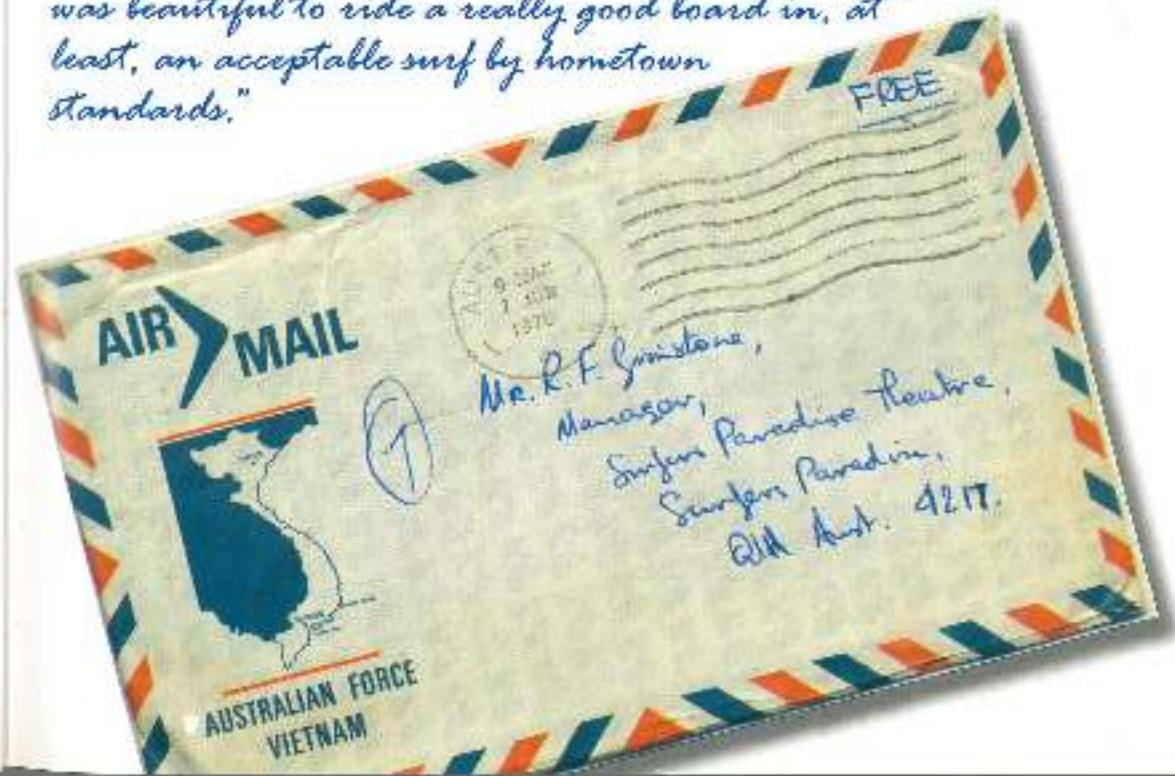 was beautiful to ride a really good board in, at
least, an acceptable surf by hometown
standards."
FREE
9 MAR
1970
AIR MAIL
Mr. R. F. Grimstone,
Manager,
Surfers Paradise Theatre,
Surfers Paradise,
Qld Aust. 4217.
T
AUSTRALIAN FORCE
VIETNAM